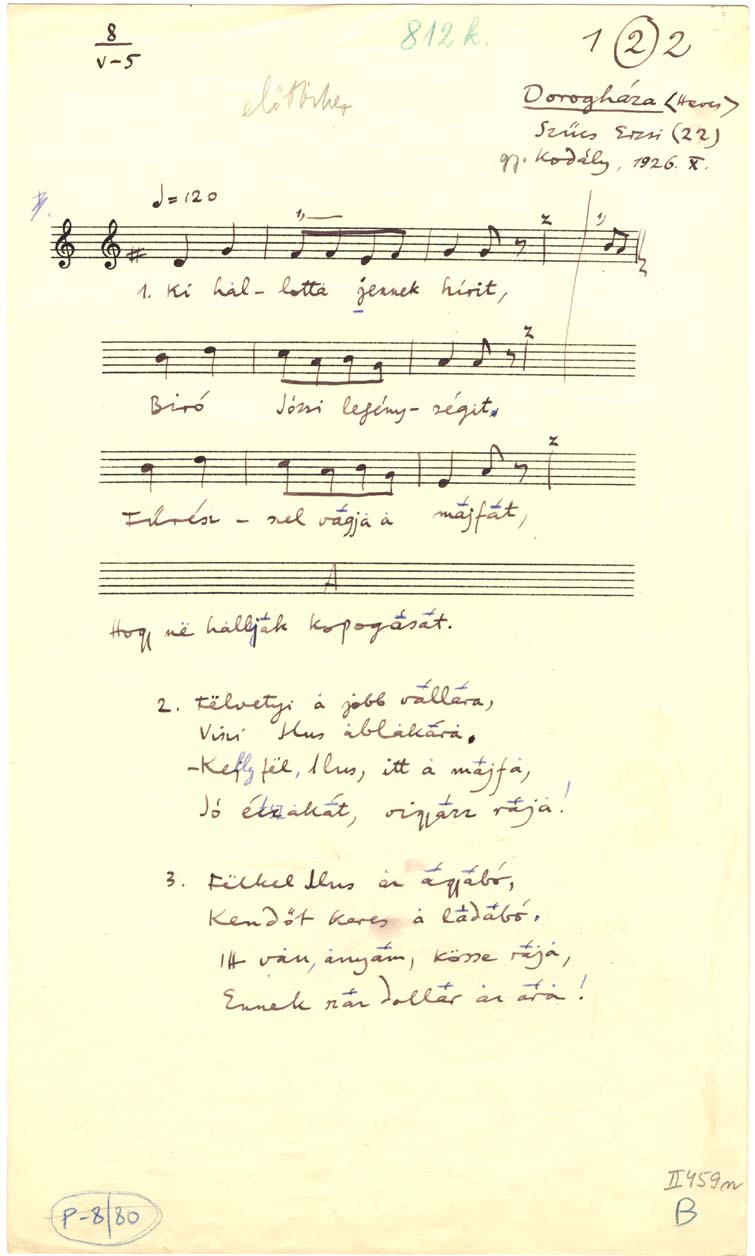 8
V-5
812 k.
1 2 2
Dorogháza (Heves)
Szűcs Erzsi (22)
gy. Kodály, 1926. X.
♩=120
1. Ki hal-lotta jennek hírit,
Biró Józsi legény-ségit.
Fűrész-szel vágja a májfát,
A
Hogy në hallják kopogását.
2. Fëlvetyi a jobb vállára,
Viszi Ilus ablakára.
-Kelly fël, Ilus, itt a májfa,
Jó éjszakát, vigyázz rája!
3. Fëlkel Ilus az ágyábó,
Kendőt keres a ládábó.
Itt van, anyám, kösse rája,
Ennek száz dollár az ára!
P-8/80
II 459
B